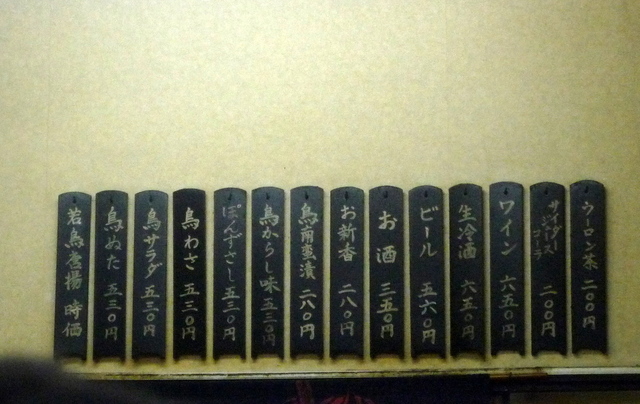 ウーロン茶 二〇〇円
サイダー
ジュース
コーラ
二〇〇円
ワイン 六五〇円
生冷酒 六五〇円
ビール 五六〇円
お酒 三五〇円
お新香 二八〇円
鳥南蛮漬 二八〇円
鳥からし味 五三〇円
ぽんずさし 五三〇円
鳥わさ 五三〇円
鳥サラダ 五三〇円
鳥ぬた 五三〇円
若鳥唐揚 時価